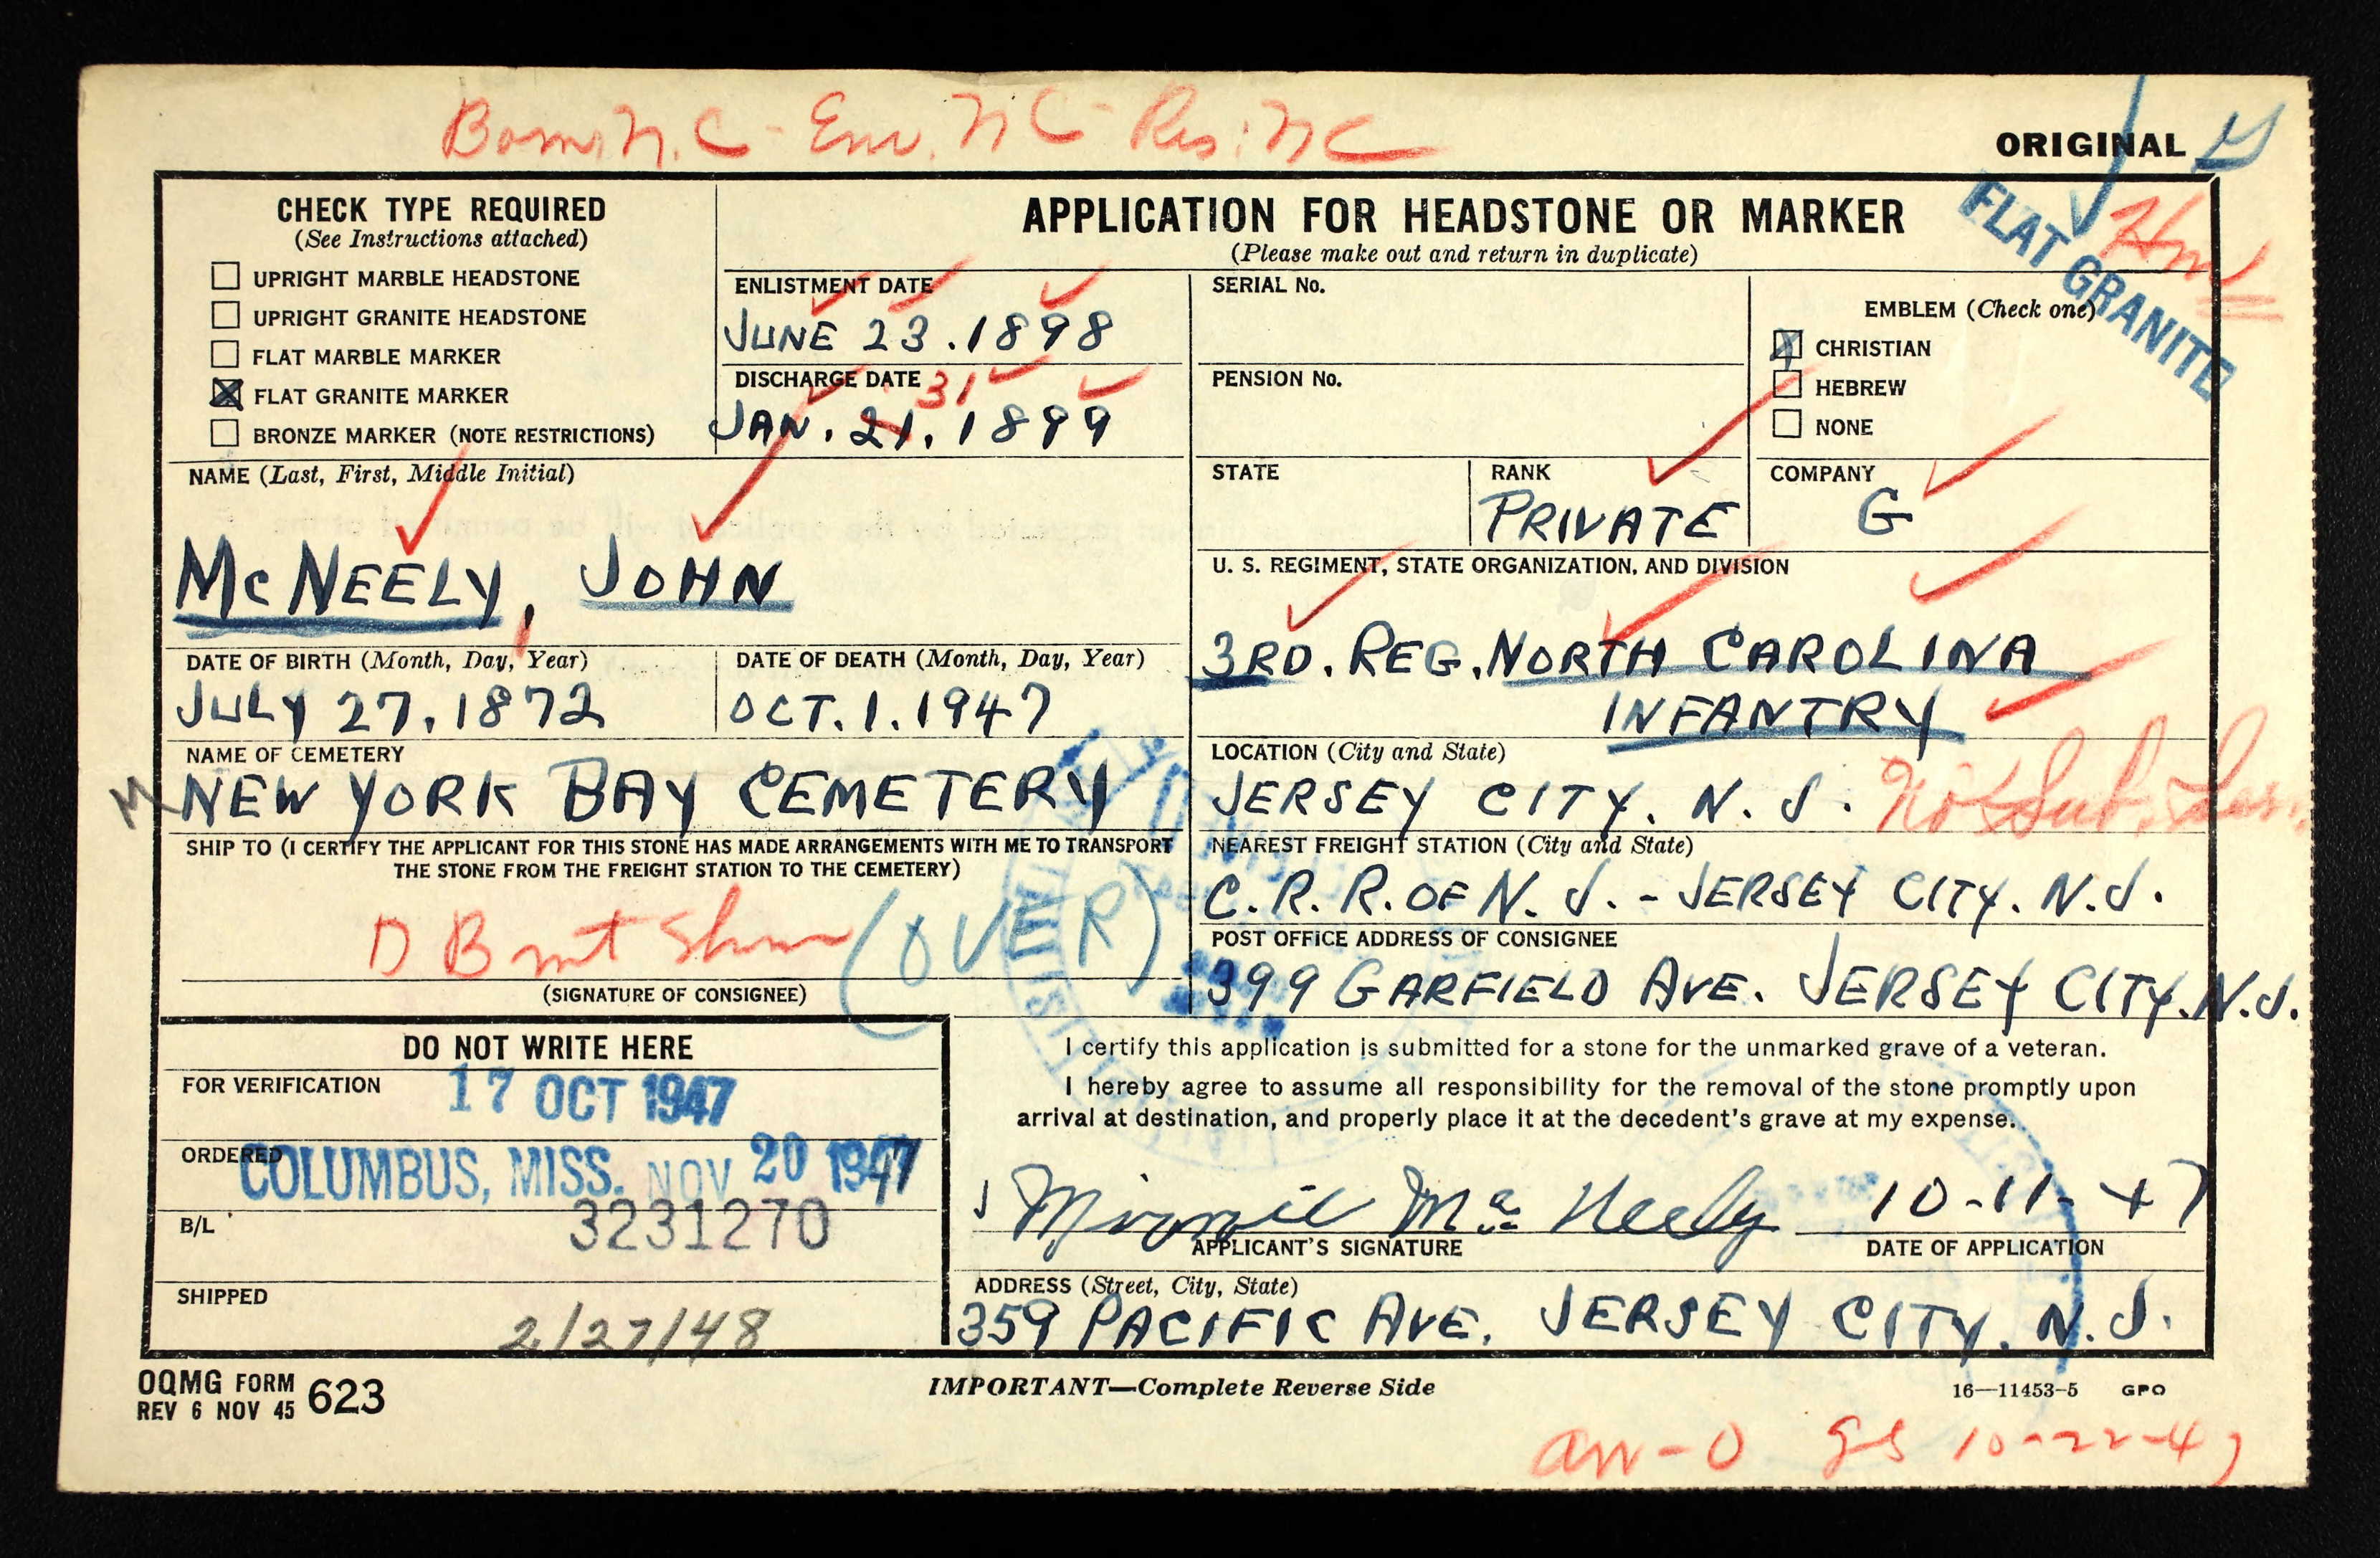 Born, N.C - Env. NC - Res: NC
ORIGINAL
CHECK TYPE REQUIRED
(See Instructions attached)
UPRIGHT MARBLE HEADSTONE
UPRIGHT GRANITE HEADSTONE
FLAT MARBLE MARKER
FLAT GRANITE MARKER
BRONZE MARKER (NOTE RESTRICTIONS)
APPLICATION FOR HEADSTONE OR MARKER
(Please make out and return in duplicate)
FLAT GRANITE
ENLISTMENT DATE
JUNE 23. 1898
DISCHARGE DATE 31
JAN. 21. 1899
SERIAL No.
PENSION No.
EMBLEM (Check one)
CHRISTIAN
HEBREW
NONE
NAME (Last, First, Middle Initial)
McNEELY, JOHN
STATE
RANK
PRIVATE
COMPANY
G
U. S. REGIMENT, STATE ORGANIZATION, AND DIVISION
3RD. REG. NORTH CAROLINA
INFANTRY
DATE OF BIRTH (Month, Day, Year)
JULY 27, 1872
DATE OF DEATH (Month, Day, Year)
OCT. 1. 1947
NAME OF CEMETERY
NEW YORK BAY CEMETERY
LOCATION (City and State)
JERSEY CITY. N. J.
SHIP TO (I CERTIFY THE APPLICANT FOR THIS STONE HAS MADE ARRANGEMENTS WITH ME TO TRANSPORT
THE STONE FROM THE FREIGHT STATION TO THE CEMETERY)
(OVER)
(SIGNATURE OF CONSIGNEE)
NEAREST FREIGHT STATION (City and State)
C. R. R. OF N. J. - JERSEY CITY. N. J.
POST OFFICE ADDRESS OF CONSIGNEE
399 GARFIELD AVE. JERSEY CITY. N. J.
DO NOT WRITE HERE
FOR VERIFICATION
17 OCT 1947
ORDERED
COLUMBUS, MISS. NOV 20 1947
B/L
3231270
SHIPPED
2/27/48
I certify this application is submitted for a stone for the unmarked grave of a veteran.
I hereby agree to assume all responsibility for the removal of the stone promptly upon
arrival at destination, and properly place it at the decedent's grave at my expense.
Minnie Mc Neely 10-11-47
APPLICANT'S SIGNATURE
DATE OF APPLICATION
ADDRESS (Street, City, State)
359 PACIFIC AVE. JERSEY CITY. N. J.
OQMG FORM 623
REV 6 NOV 45
IMPORTANT—Complete Reverse Side
16—11453-5 GPO
10-22-47